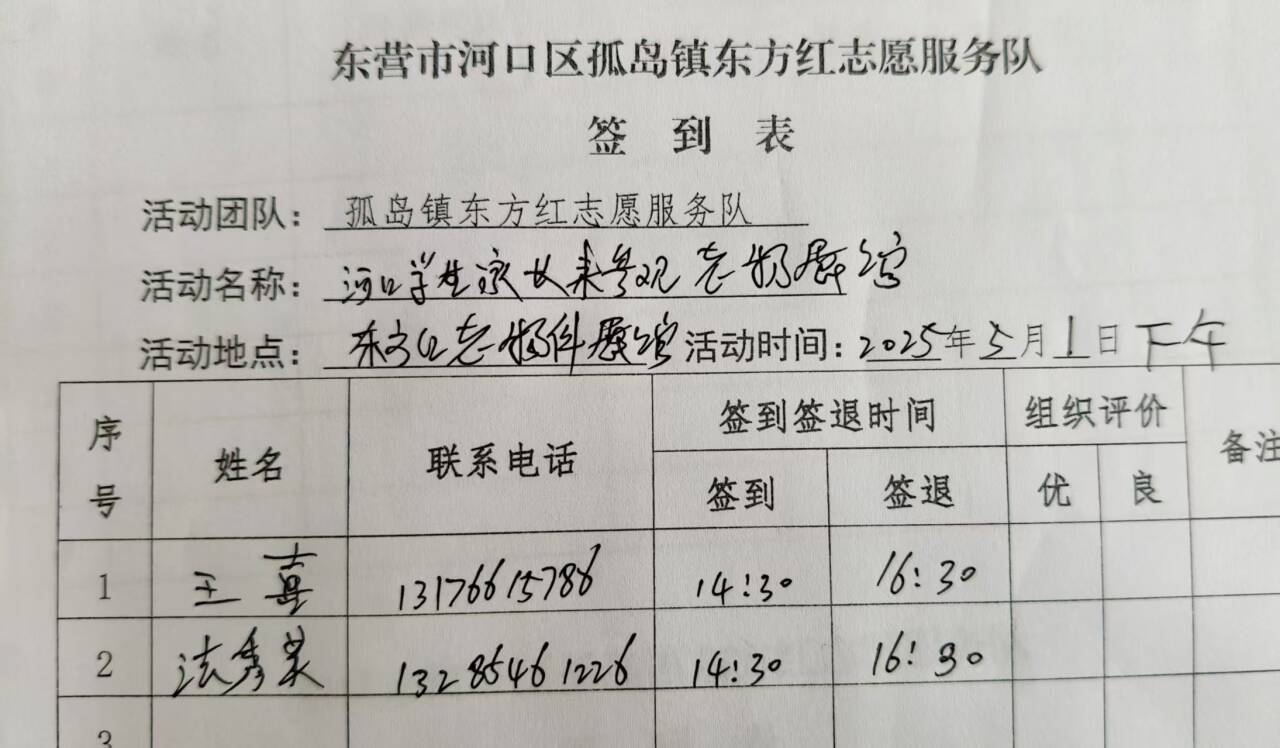 东营市河口区孤岛镇东方红志愿服务队
签 到 表
活动团队：孤岛镇东方红志愿服务队
活动名称：河口学生家长来参观老物展馆
活动地点：东方红老物件展馆 活动时间：2025年5月1日下午
序号 姓名 联系电话 签到签退时间 组织评价 备注
签到 签退 优 良
1 王喜 13176615786 14:30 16:30
2 法秀荣 13285461226 14:30 16:30
3